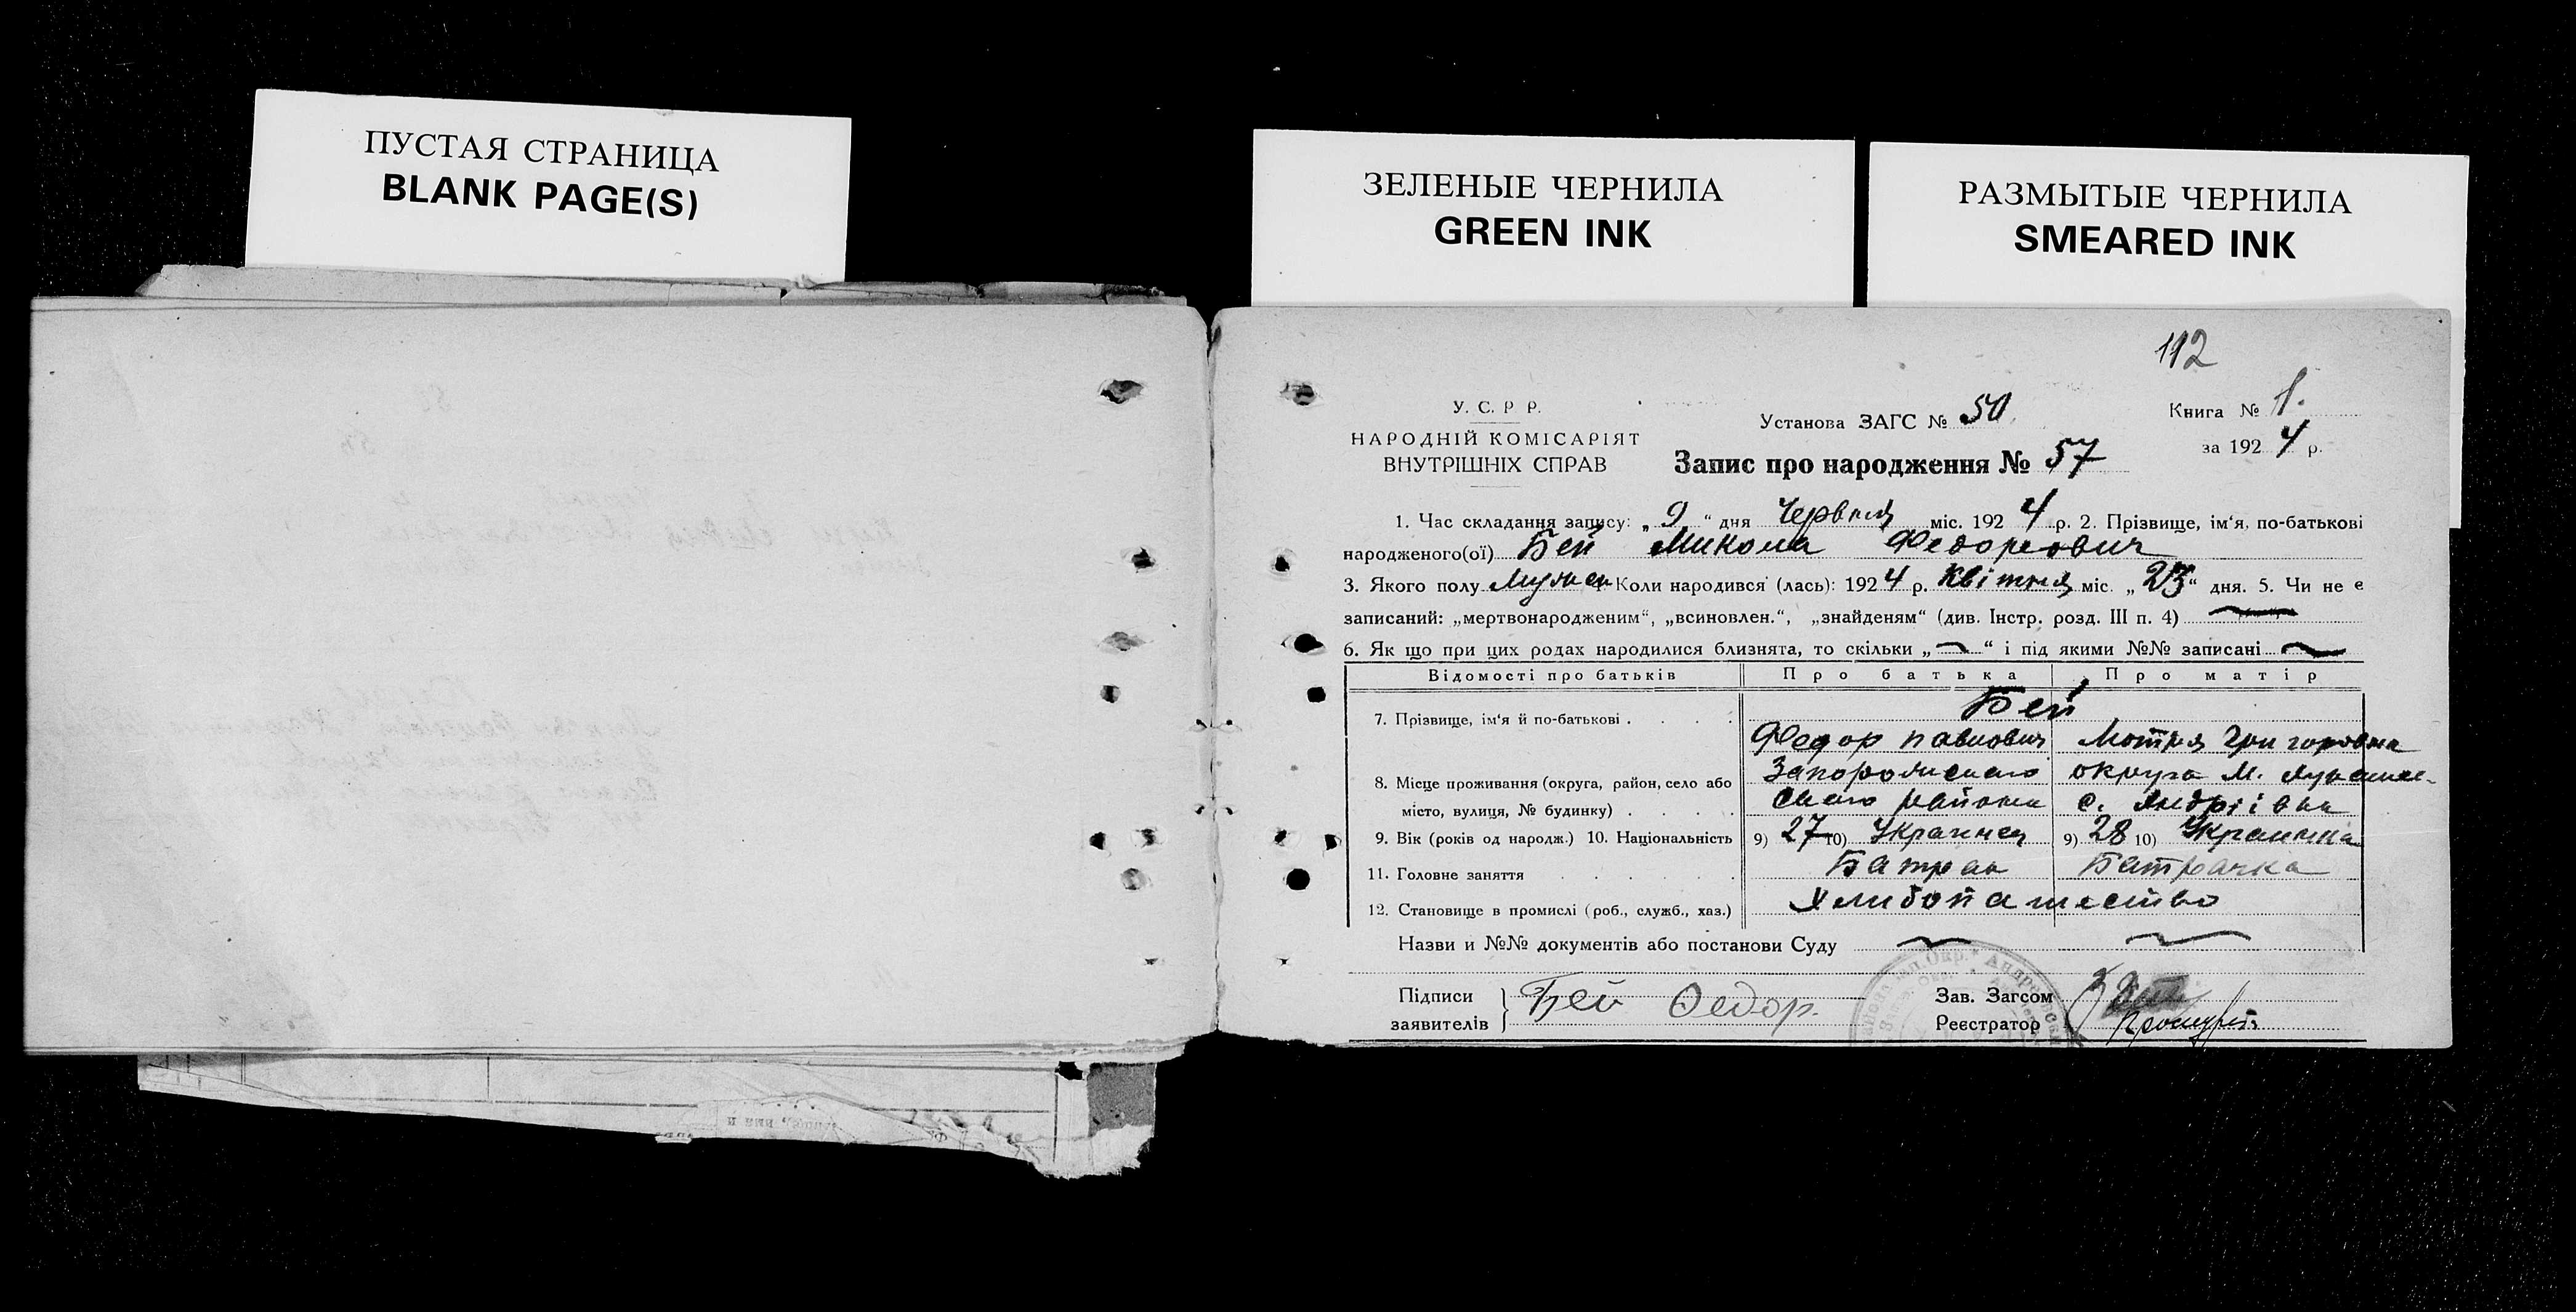 ПУСТАЯ СТРАНИЦА
BLANK PAGE(S)
ЗЕЛЕНЫЕ ЧЕРНИЛА
GREEN INK
РАЗМЫТЫЕ ЧЕРНИЛА
SMEARED INK
112
У. С. Р. Р.
НАРОДНІЙ КОМІСАРІЯТ
ВНУТРІШНІХ СПРАВ
Установа ЗАГС № 50
Запис про народження № 57
Книга № 1.
за 1924 р.
1. Час складання запису: „ 9 “ дня Червня міс. 1924 р. 2. Прізвище, ім‘я, по-батькові
народженого(ої) Бей Микола Федорович
3. Якого полу Мужск 4. Коли народився (лась): 1924 р. Квітня міс. „ 23 “ дня. 5. Чи не є
записаний: „мертвонародженим“, „всиновлен.“, „знайденям“ (див. Інстр. розд. III п. 4)
6. Як що при цих родах народилися близнята, то скільки „ “ і під якими №№ записані
Відомості про батьків Про батька Про матір
7. Прізвище, ім‘я й по-батькові . . . . Бей
Федор Павлович Мотря Григоровна
8. Місце проживання (округа, район, село або Запорожского округа М.
місто, вулиця, № будинку) . . . . ского района с. Андріівка
9. Вік (років од народж.) 10. Національність 9) 27 10) Украинец 9) 28 10) Украинка
11. Головне заняття . . . . . Батрак Батрачка
12. Становище в промислі (роб., служб., хаз.) Хлибопашество
Назви и №№ документів або постанови Суду
Підписи
заявителів
Бей Федор.
Зав. Загсом
Реєстратор